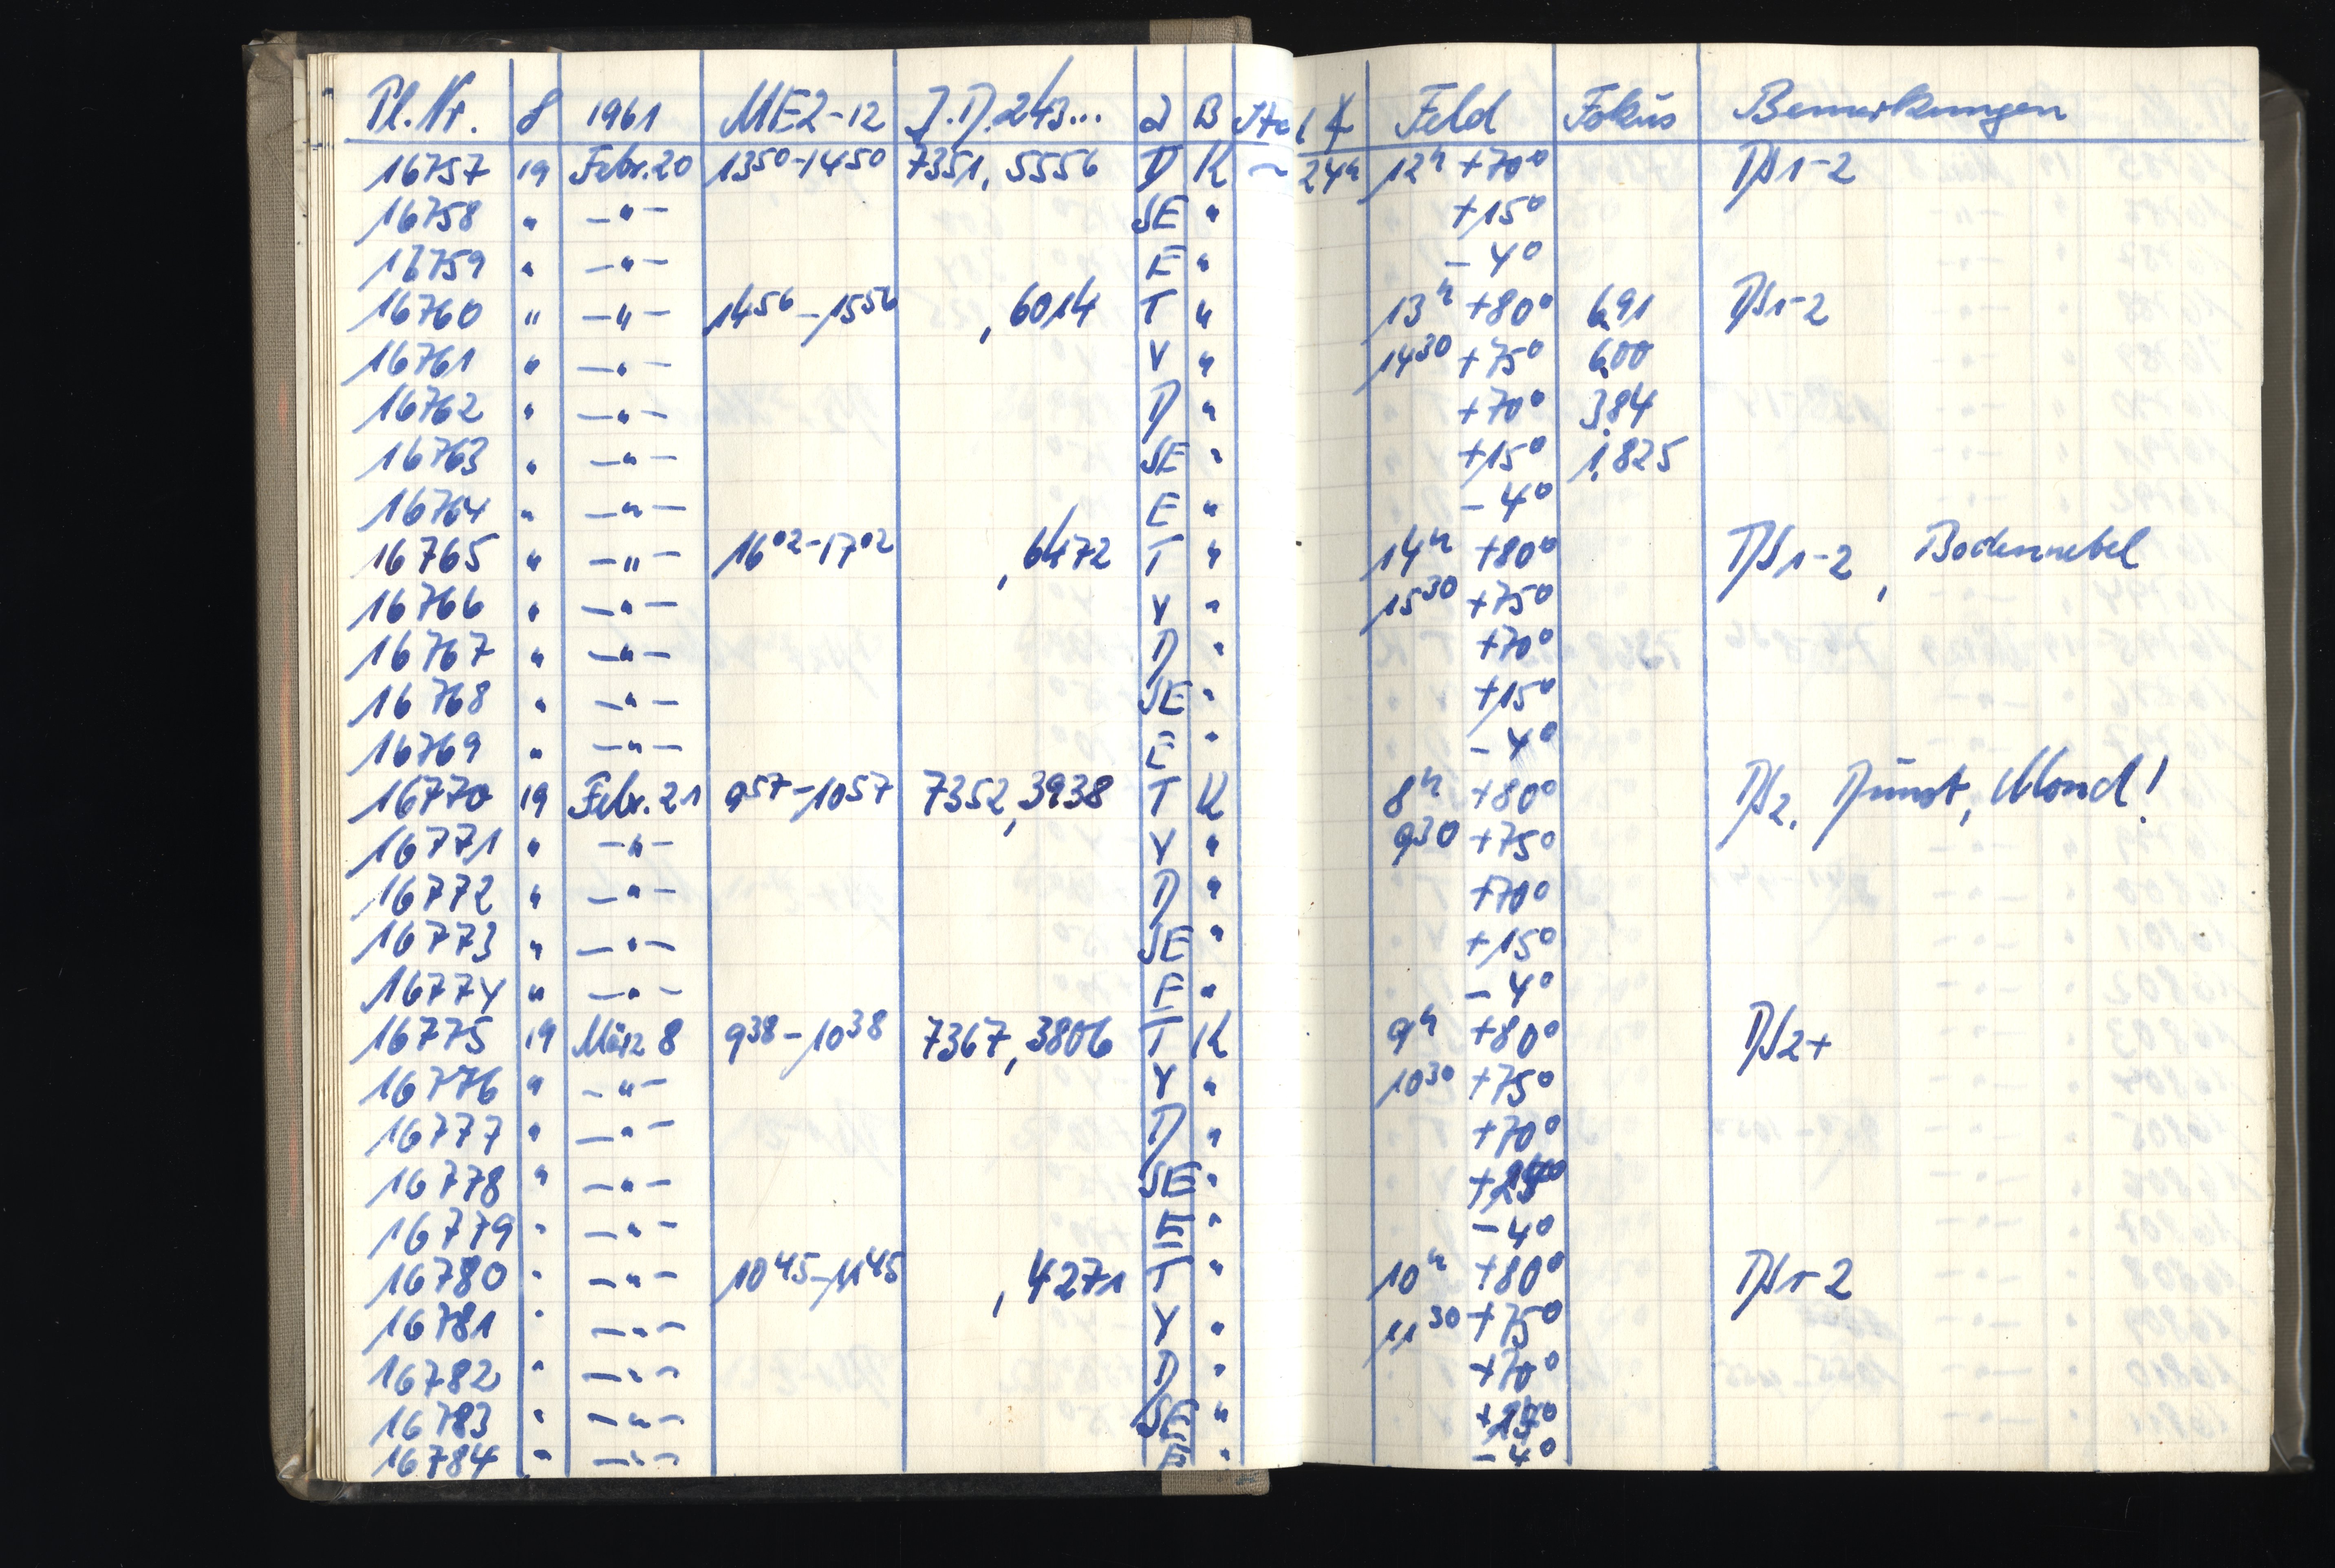 Pl.Nr. 8 1961 MEZ-12 J.D.243... B Feld Fokus Bemerkungen
16757 19 Febr.20 13⁵⁰-14⁵⁰ 7351,5556 D K ~ 24ʰ 12ʰ +70° DS1-2
16758 " -"- SE " +15°
16759 " -"- E " -4°
16760 " -"- 14⁵⁶-15⁵⁶ ,6014 T " 13ʰ +80° 6,91 DS1-2
16761 " -"- Y " 14³⁰ +75° 6,00
16762 " -"- D " +70° 3,84
16763 " -"- SE " +15° 1,825
16764 " -"- E " -4°
16765 " -"- 16⁰²-17⁰² ,6472 T " 14ʰ +80° DS1-2, Bodennebel
16766 " -"- Y " 15³⁰ +75°
16767 " -"- D " +70°
16768 " -"- SE " +15°
16769 " -"- E " -4°
16770 19 Febr.21 9⁵⁷-10⁵⁷ 7352,3938 T K 8ʰ +80° DS2, Dunst, Mond!
16771 " -"- Y " 9³⁰ +75°
16772 " -"- D " +70°
16773 " -"- SE " +15°
16774 " -"- E " -4°
16775 19 März 8 9³⁸-10³⁸ 7367,3806 T K 9ʰ +80° DS2+
16776 " -"- Y " 10³⁰ +75°
16777 " -"- D " +70°
16778 " -"- SE "
16779 " -"- E " -4°
16780 " -"- 10⁴⁵-11⁴⁵ ,4271 T " 10ʰ +80° DS1-2
16781 " -"- Y " 11³⁰ +75°
16782 " -"- D " +70°
16783 " -"- SE "
16784 " -"- E " -4°